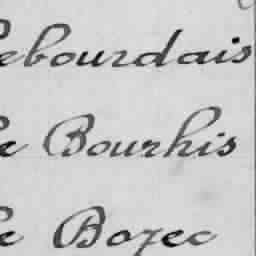 Lebourdais
Le Bourhis
Le Bozec